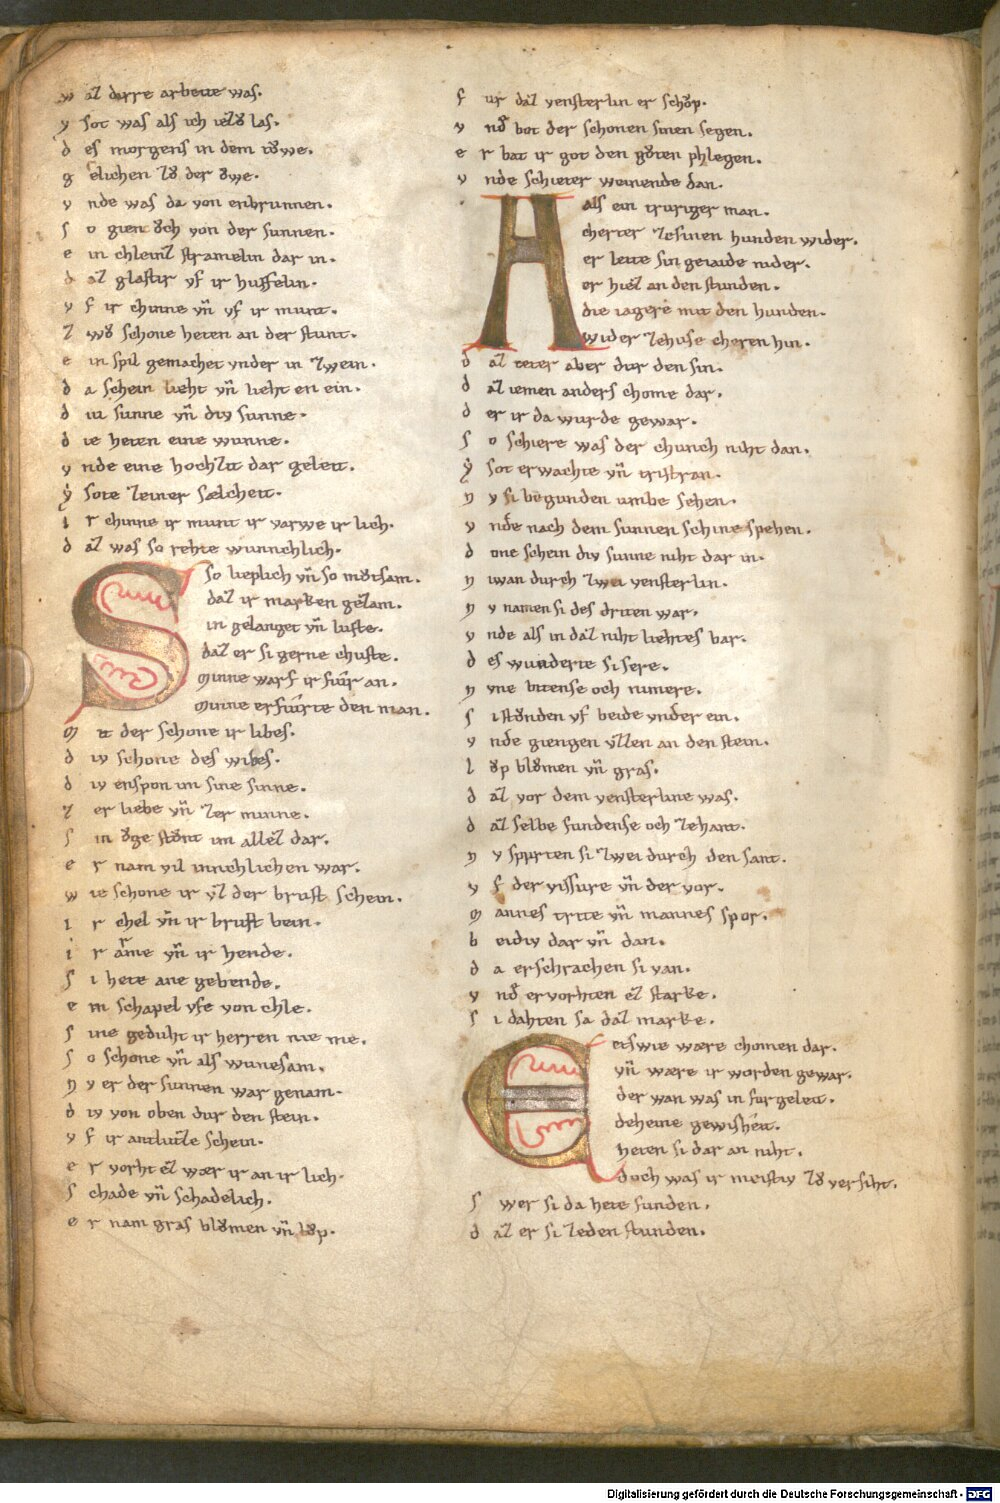 w az darre arbeite was.
ysot was als ich iezo las.
des morgens in dem towe.
gelichen zo der owe.
vnde was da von enbrunnen.
so gien och von der sunnen.
ein chleinz stramelin dar in.
daz glastir vf ir huffelin.
vf ir chinne vn̄ vf ir munt.
zwo schone heten an der stunt.
ein spil gemachet vnder in zwein.
da schein lieht vn̄ lieht en ein.
diu sunne vn̄ div sunne.
die heten eine wunne.
vnde eine hochzit dar geleit.
ẏsote zeiner sælcheit.
ir chinne ir munt ir varwe ir lich.
daz was so rehte wunnchlich.
So lieplich vn̄ so mo̊tsam.
daz ir marken gezam.
in gelanget vn̄ luste.
daz er si gerne chuste.
minne warf ir fiur an.
minne erfiurte den man.
mit der schone ir libes.
div schone des wibes.
div enspon im sine sinne.
zer liebe vn̄ zer minne.
sin oge sto̊nt im allez dar.
er nam vil innchlichen war.
wie schone ir vz der brust schein.
ir chel vn̄ ir brust bein.
ir arme vn̄ ir hende.
si hete ane gebende.
ein schapel vfe von chle.
sine geduht ir herren nie me.
so schone vn̄ als wunesam.
nv er der sunnen war genam.
div von oben dur den stein.
vf ir antluzze schein.
er vorht ez wær ir an ir lich.
schade vn̄ schadelich.
er nam gras blo̊men vn̄ lo̊p.
fur daz vensterlin er scho̊p.
vnd̄ bot der schonen sinen segen.
er bat ir got den go̊ten phlegen.
vnde schieter weinende dan.
Als ein truriger man.
cherter zesinen hunden wider.
er leite sin geiaide nider.
er hiez an den stunden.
die iagere mit den hunden.
wider zehuse cheren hin.
daz teter aber dur den sin.
daz iemen anders chome dar.
der ir da wurde gewar.
so schiere was der chunch niht dan.
ẏsot erwachte vn̄ tristran.
nv si begunden umbe sehen.
vnde nach dem sunnen schine spehen.
done schein div sunne niht dar in.
niwan durch zwei vensterlin.
nv namen si des driten war.
vnde als in daz niht liehtes bar.
des wunderte si sere.
nvne bitense och nimere.
si sto̊nden vf beide vnder ein.
vnde giengen vzzen an den stein.
lo̊p blo̊men vn̄ gras.
daz vor dem vensterline was.
daz selbe fundense och zehant.
nv spurten si zwei durch den sant.
vf der fissure vn̄ der vor.
mannes trite vn̄ mannes spor.
beidiv dar vn̄ dan.
da erschrachen si van.
vnd̄ ervorhten ez starke.
si dahten sa daz marke.
Etswie wære chomen dar.
vn̄ wære ir worden gewar.
der wan was in fur geleit.
deheine gewisheit.
heten si dar an niht.
doch was ir meistiv zo̊ versiht.
swer si da hete funden.
daz er si zeden stunden.
Digitalisierung gefördert durch die Deutsche Forschungsgemeinschaft - DFG